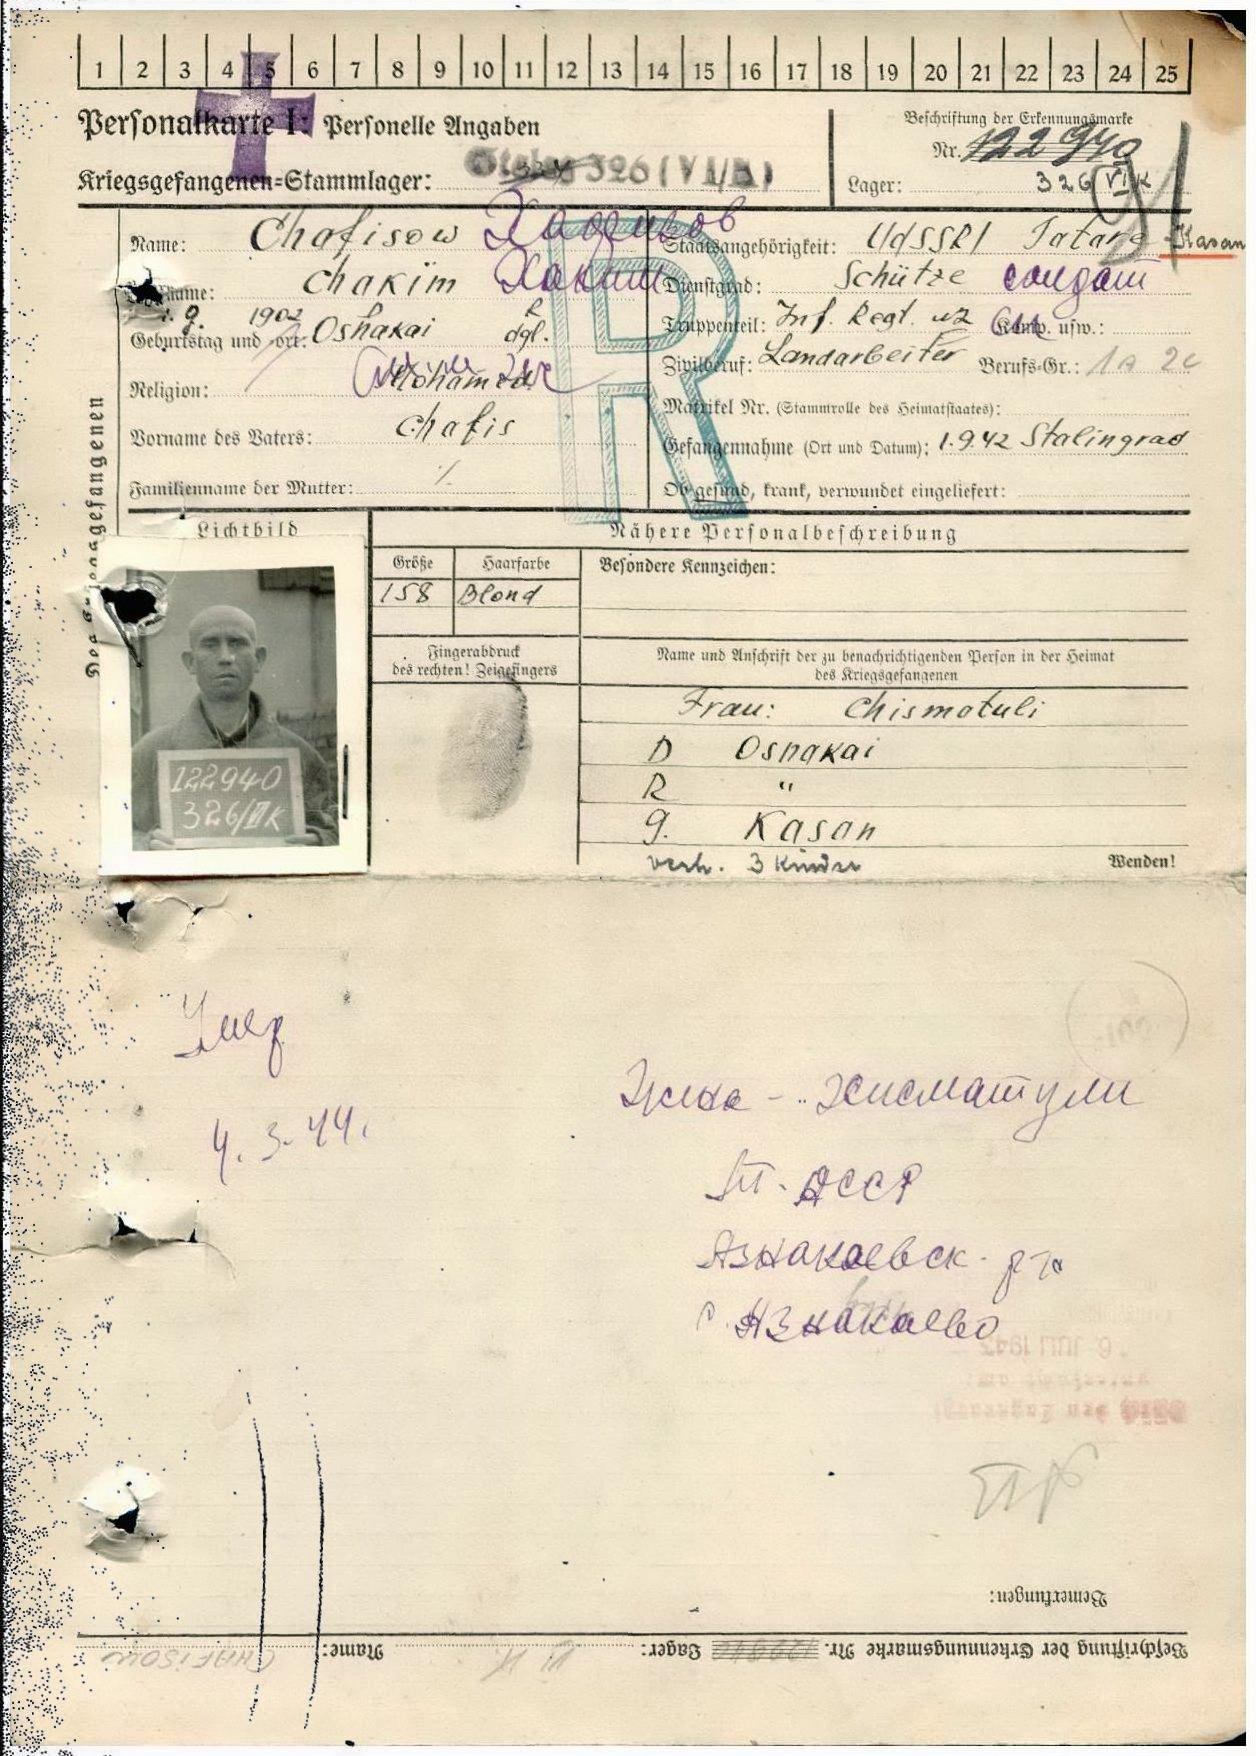 1 2 3 4 5 6 7 8 9 10 11 12 13 14 15 16 17 18 19 20 21 22 23 24 25
Personalkarte I: Personelle Angaben
Beschriftung der Erkennungsmarke
Nr. 122940
Kriegsgefangenen=Stammlager: 326 (VI/K)
Lager: 326 VI K
Des Kriegsgefangenen
Name: Chafisow
Staatsangehörigkeit: UdSSR Tatare - Kasan
Vorname: Chakim Хаким
Dienstgrad: Schütze солдат
Geburtstag und -ort: 1902 Osnakai
Truppenteil: Inf. Regt. Komp. usw.:
Zivilberuf: Landarbeiter Berufs-Gr.: 1a 2c
Religion: Mohamed.
Matrikel Nr. (Stammrolle des Heimatstaates):
Vorname des Vaters: Chafis
Gefangennahme (Ort und Datum): 1.9.42 Stalingrad
Familienname der Mutter: ٪
Ob gesund, krank, verwundet eingeliefert:
R
Lichtbild
Nähere Personalbeschreibung
Größe Haarfarbe Besondere Kennzeichen:
158 Blond
Fingerabdruck
des rechten! Zeigefingers
Name und Anschrift der zu benachrichtigenden Person in der Heimat
des Kriegsgefangenen
Frau: Chismatuli
D Osnakai
R "
g. Kasan
verh. 3 Kinder
Wenden!
122940
326/VI K
Умер
4.3.44.
Жена - Хисматули
Т. АССР
Азнакаевск. р-н
с. Азнакаево
6. JULI 194
Bemerkungen:
Beschriftung der Erkennungsmarke Nr. 122940 Lager: VI K Name: CHAFISOW